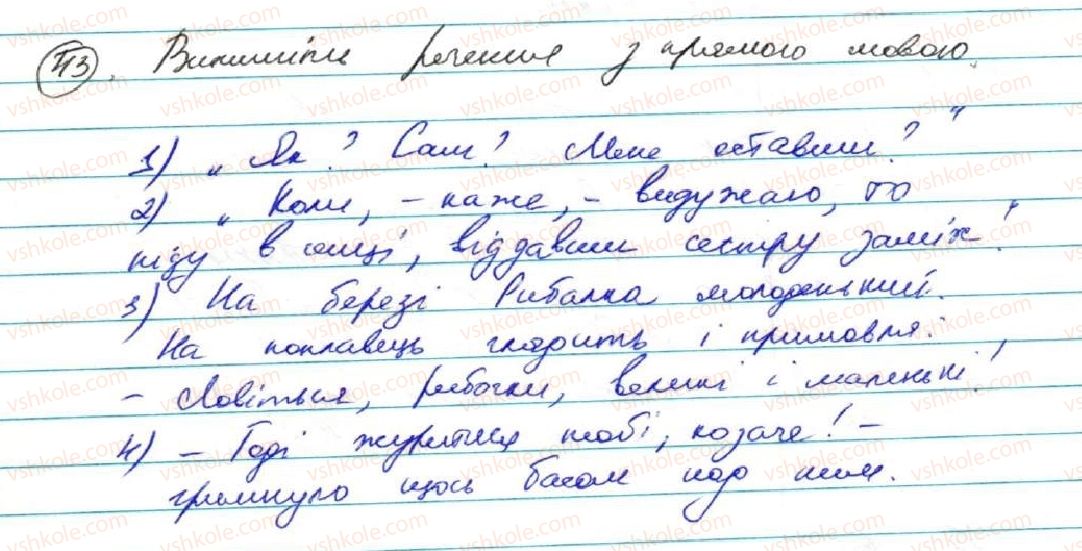 43. Випишіть речення з прямою мовою.
1) „Як? Сам? Мене оставши?"
2) „Коли, – каже, – видужаю, то
піду в ченці, віддавши сестру заміж!
3) На березі Рибалка молоденький.
На поплавець глядить і примовля:
– Ловіться, рибочки, великі і маленькі!
4) – Годі журитися тобі, козаче! –
гримнуло щось басом над ним.